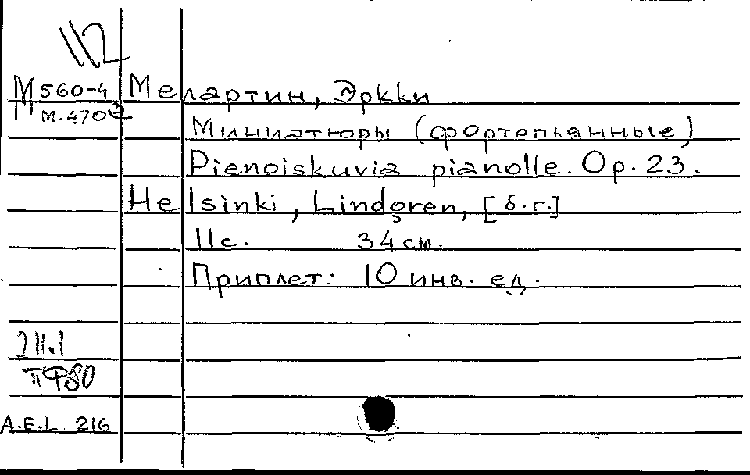 112
М560-4 Мелартин, Эркки
М.470
Миниатюры (фортепьянные)
Pienoiskuvia pianolle. Op. 23.
Helsinki, Lindgren, [б.г.]
11с. 34 см.
Приплет: 10 инв. ед.
ПФ80
A.E.L. 216